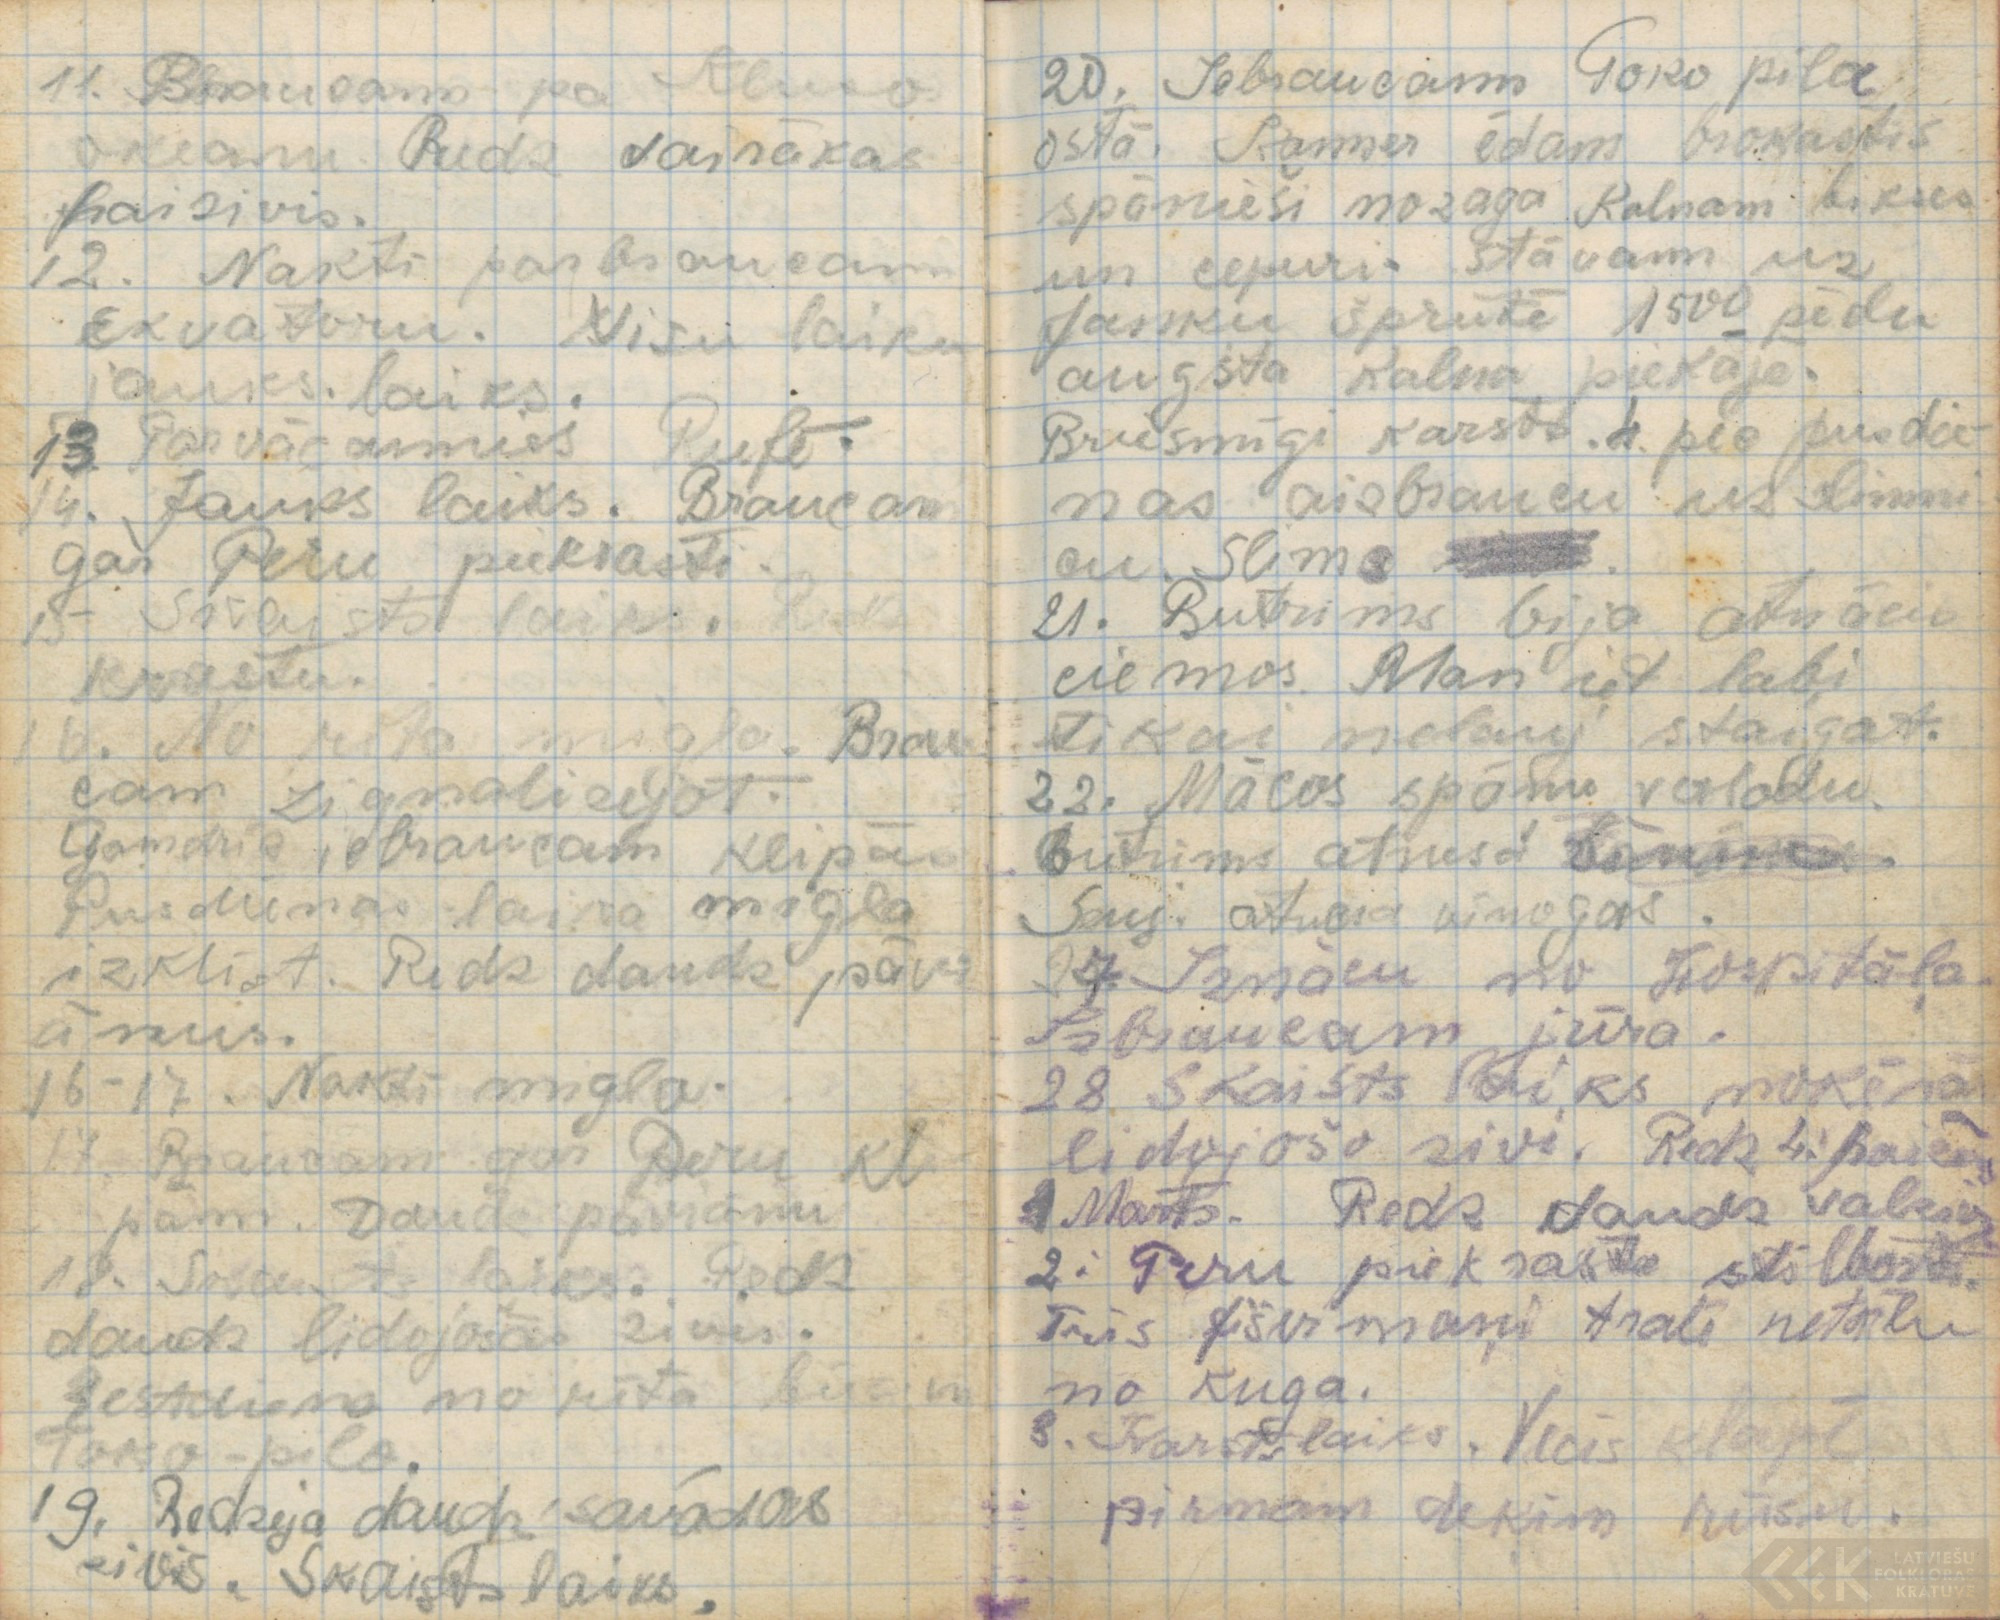 11. Braucam pa Kluso
okeanu. Redz vairākas
haizivis.
12. Nakti parbraucam
Ekvatoru. Visu laiku
jauks laiks.
13 Parvācamies Rufē.
14. Jauks laiks. Braucam
gar Peru piekrasti.
15 laiks. Redz
krastu.
16. No rīta migla. Brau
cam zignalizējot.
Gandrīz iebraucam klipās
Pusdienas laika migla
izklist. Redz daudz pāvi
ānus.
16-17. Nakti migla.
17. Braucam gar Peru kli
pām. Daudz paviānu
18. laiks. Redz
daudz lidojošas zivis.
Sestdiena no rīta būsim
Toko-pila.
19. Redzeja daudz savādas
zivis. Skaists laiks.
20. Iebraucam Toko pila
ostā. Kamer ēdam brokastis
spānieši nozaga Kalnam bikses
un cepuri. Stāvam uz
Janku šprūtē 1500 pēdu
augsta kalna piekājē.
Brusmīgi karsts. 4. pēc pusdie-
nas aizbraucu uz slimni
cu. Slims
21. Butrims bija atnācis
ciemos. Man iet labi
tikai nelauj staigat.
22. Mācos spāņu valodu.
Butrims atnesa
Smj. atnesa vīnogas.
27 Iznācu no Hospitāļa.
Izbraucam jūra.
28 Skaists laiks nokēra
lidojošo zivi. Redz 4.
1 Marts. Redz daudz valzivis
2. Peru piekraste
Trīs fišermaņi trali netālu
no kuga.
3. Karsts laiks. Vecis klapē
pirmam dekim rūsu.
LATVIEŠU
FOLKLORAS
KRĀTUVE